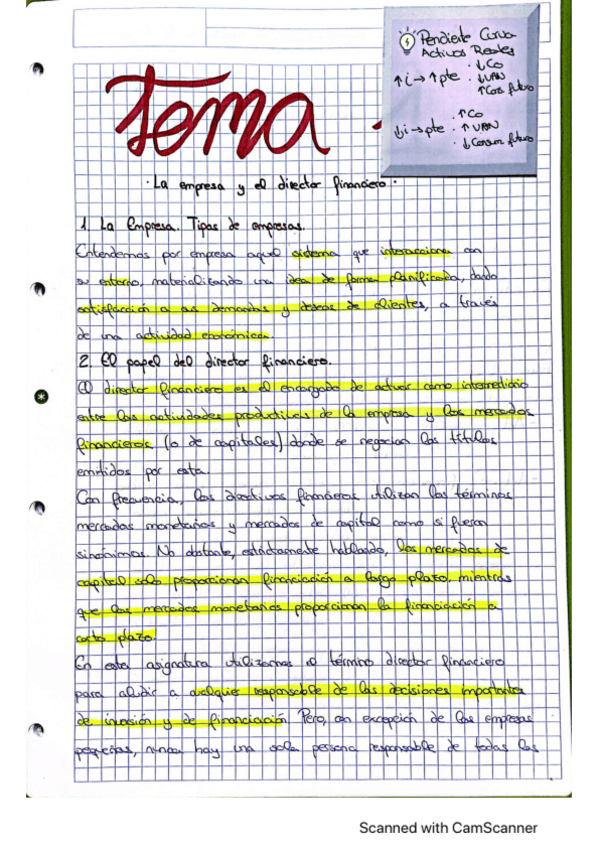 Tema
Pendiente Curva
Activos Reales
↑i→↑pte : ↓Co
↓VAN
↑Cons futuro
↓i→pte : ↑Co
↑VAN
↓Consum futuro
· La empresa y el director financiero ·
1. La Empresa. Tipos de empresas.
Entendemos por empresa aquel sistema que interacciona con
su entorno, materializando una idea de forma planificada, dando
satisfacción a las demandas y deseos de clientes, a través
de una actividad económica.
2. El papel del director financiero.
El director financiero es el encargado de actuar como intermediario
entre las actividades productivas de la empresa y los mercados
financieros (o de capitales) donde se negocian los títulos
emitidos por esta.
Con frecuencia, los directivos financieros utilizan los términos
mercados monetarios y mercados de capital como si fueran
sinónimos. No obstante, estrictamente hablando, los mercados de
capital solo proporcionan financiación a largo plazo, mientras
que los mercados monetarios proporcionan la financiación a
corto plazo.
En esta asignatura utilizamos el término director financiero
para aludir a cualquier responsable de las decisiones importantes
de inversión y de financiación. Pero, con excepción de las empresas
pequeñas, nunca hay una sola persona responsable de todas las
Scanned with CamScanner